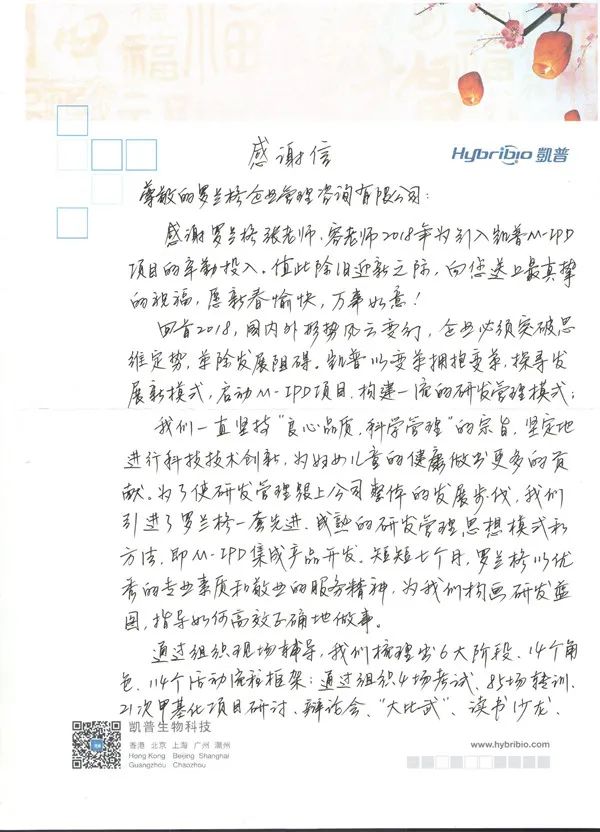 感谢信
Hybribio 凯普
尊敬的罗兰格企业管理咨询有限公司：
感谢罗兰格张老师、容老师2018年为引入凯普M-IPD
项目的辛勤投入。值此除旧迎新之际，向您送上最真挚
的祝福，愿新春愉快，万事如意！
回首2018，国内外形势风云变幻，企业必须突破思
维定势，革除发展阻碍。凯普以变革拥抱变革，探寻发
展新模式，启动M-IPD项目，构建一流的研发管理模式；
我们一直坚持“良心品质，科学管理”的宗旨，坚定地
进行科技技术创新，为妇女儿童的健康做出更多的贡
献。为了使研发管理跟上公司整体的发展步伐，我们
引进了罗兰格一套先进、成熟的研发管理思想模式和
方法，即M-IPD集成产品开发。短短七个月，罗兰格以优
秀的专业素质和敬业的服务精神，为我们构画研发蓝
图，指导如何高效正确地做事。
通过组织现场辅导，我们梳理出6大阶段、14个角
色、114个活动流程框架；通过组织4场考试、85场转训、
21次甲基化项目研讨、辩论会、“大比武”、读书沙龙、
凯普生物科技
香港 北京 上海 广州 潮州
Hong Kong Beijing Shanghai
Guangzhou Chaozhou
www.hybribio.com